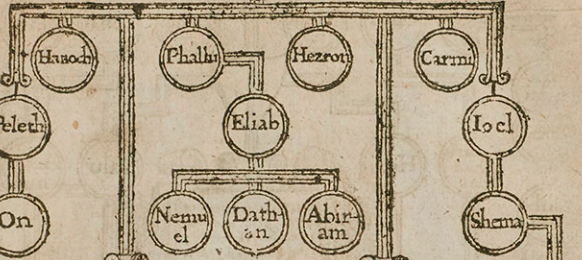 Hanoch
Phallu
Hezron
Carmi
Peleth
Eliab
Ioel
On
Nemu
el
Dath-
an
Abir-
am
Shema